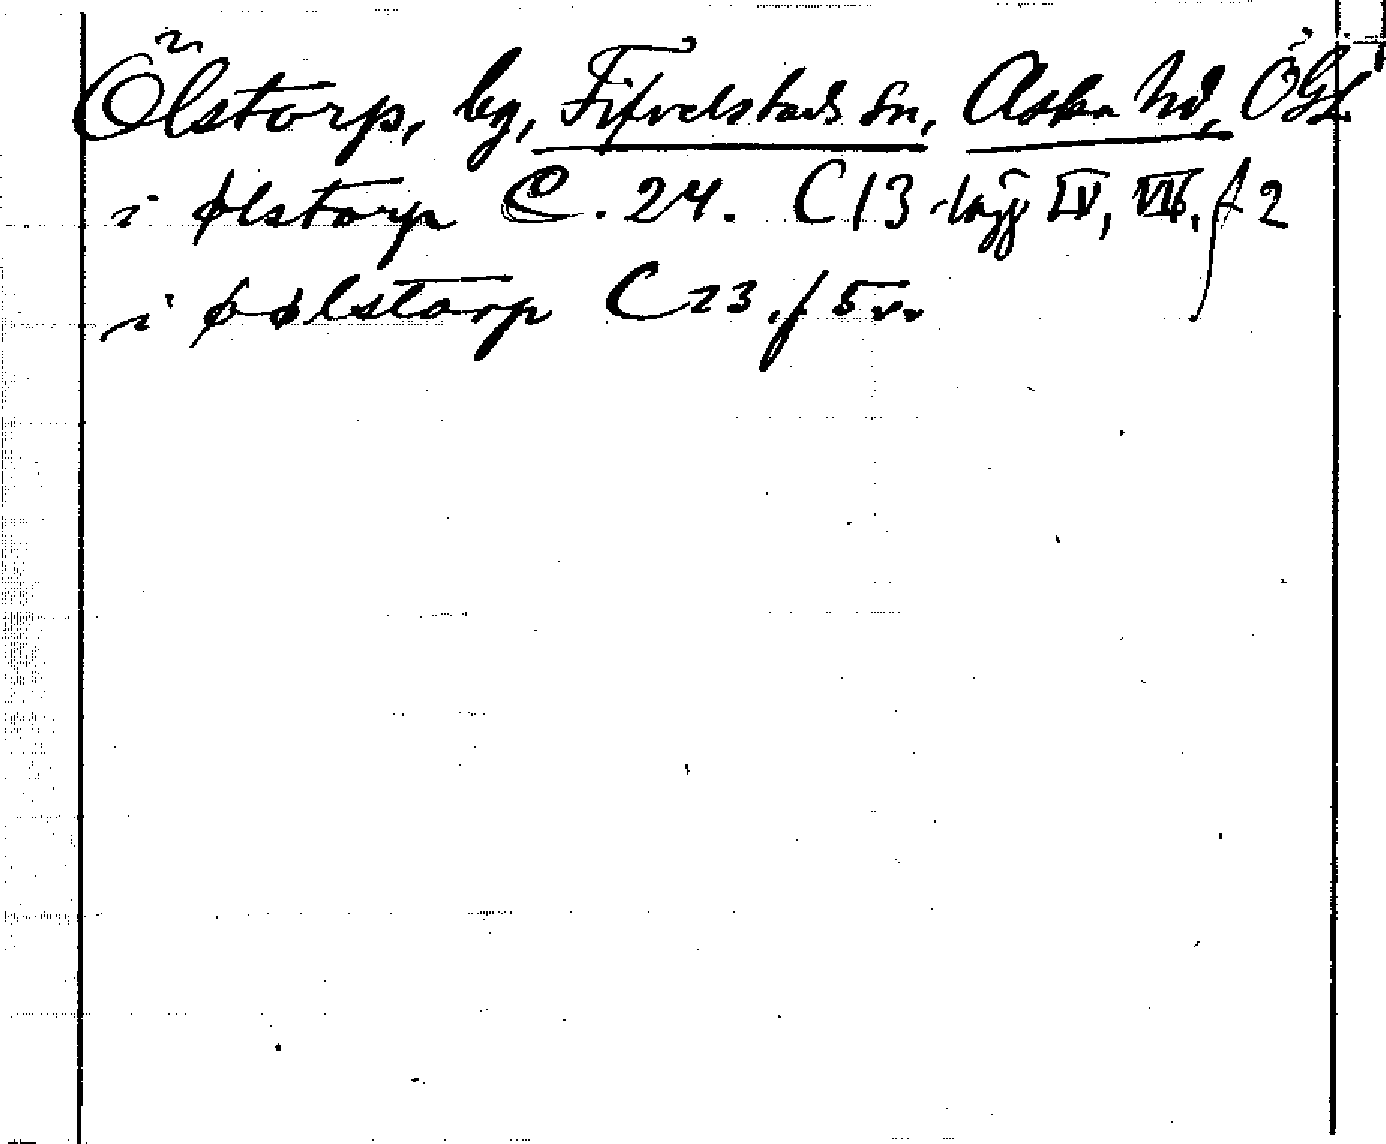 Ölstorp, by, Fifvelstads sn, Aska hd, ÖGL
i ølstorp C. 24. C 13 lägg IV, VII, f 2
i øølstorp C 23. f 5 v.